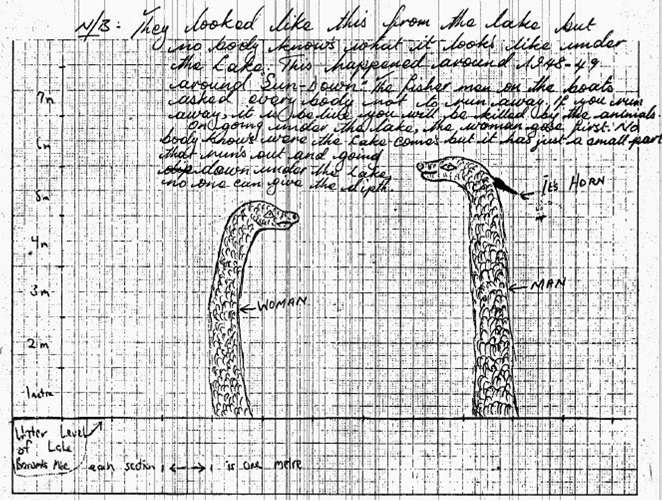 N/B: They looked like this from the lake but
no body knows what it looks like under
the Lake. This happened around 1948-49
around Sun-Down. The fisher men on the boats
asked every body not to run away, If you run
away, it will be like you will be killed by the animals.
On going under the lake, the woman goes first. No
body knows were the Lake comes but it has just a small part
that runs out and going
down under the Lake
no one can give the dipth.
7m
6m
5m
4m
3m
2m
1 metre
ITS HORN
MAN
WOMAN
Water Level
of Lake
each section is one metre